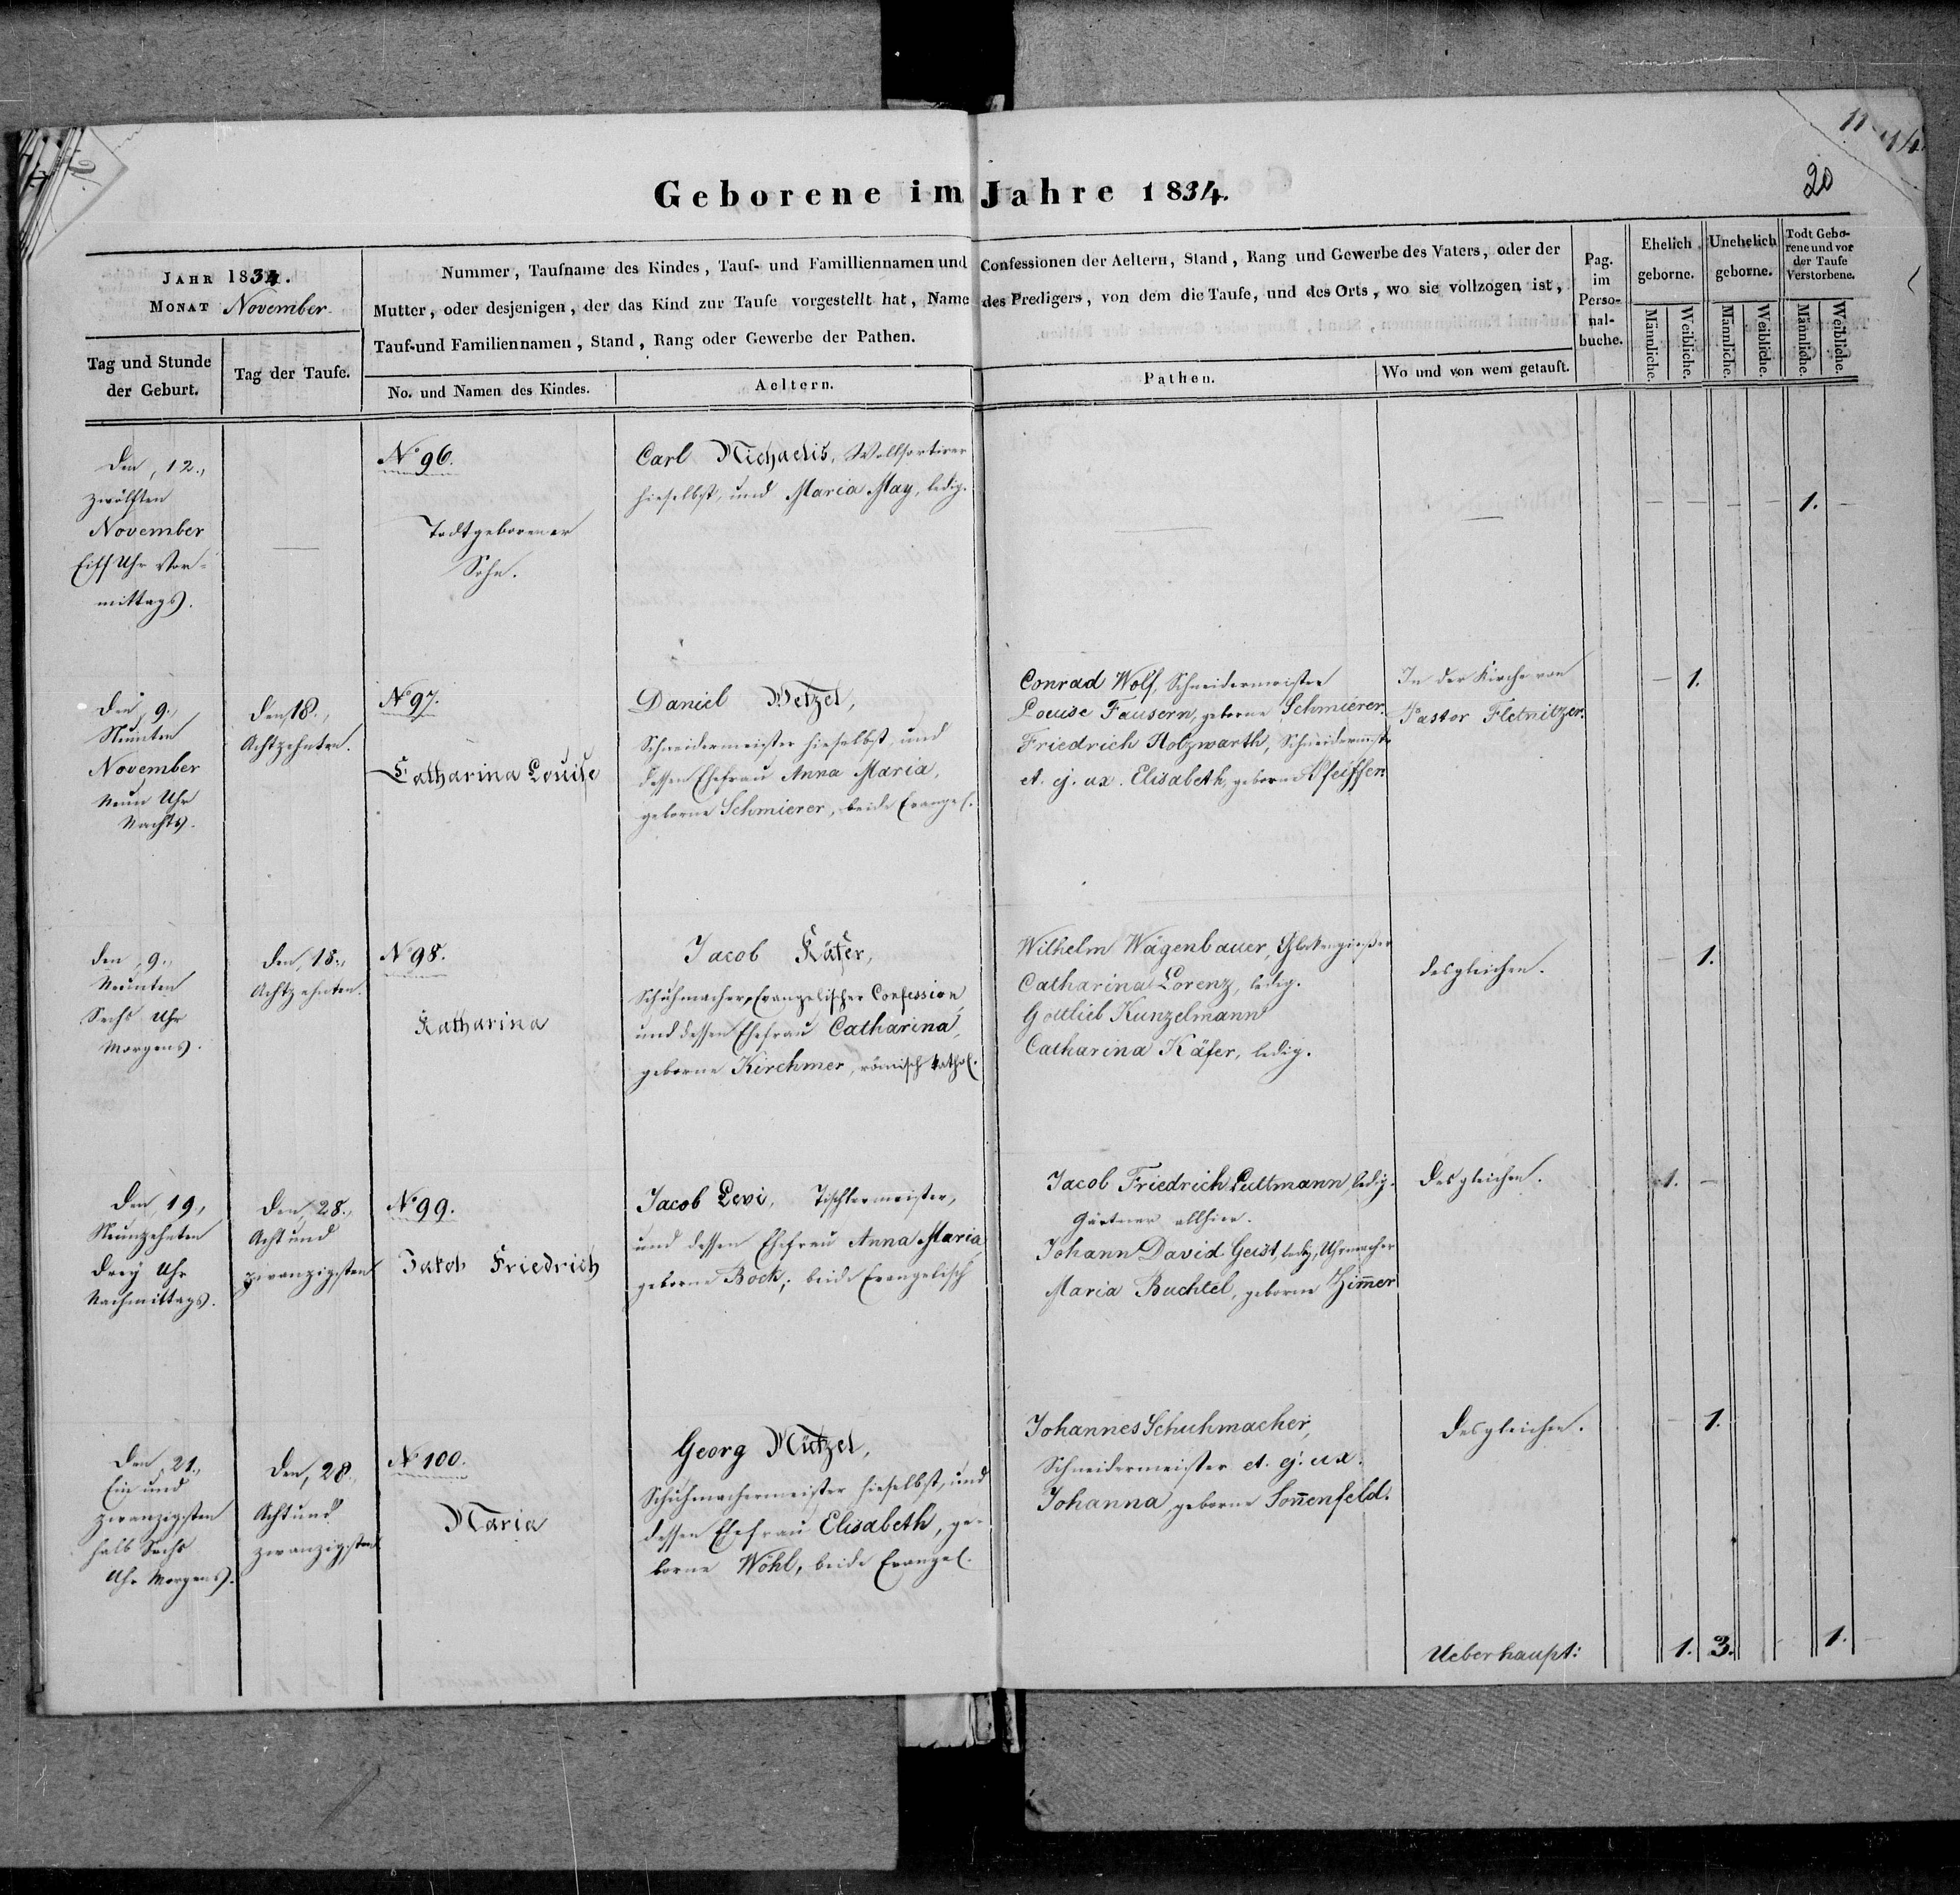 11 14.
20
Geborene im Jahre 1834.
JAHR 1834.
MONAT November.
Nummer, Taufname des Kindes, Tauf- und Familliennamen und Confessionen der Aeltern, Stand, Rang und Gewerbe des Vaters, oder der
Mutter, oder desjenigen, der das Kind zur Taufe vorgestellt hat, Name des Predigers, von dem die Taufe, und des Orts, wo sie vollzogen ist,
Tauf-und Familiennamen, Stand, Rang oder Gewerbe der Pathen.
Tag und Stunde
der Geburt.
Tag der Taufe.
No. und Namen des Kindes.
Aeltern.
Pathen.
Wo und von wem getauft.
Pag.
im
Perso-
nal-
buche.
Ehelich
geborne.
Unehelich
geborne.
Todt Gebo-
rene und vor
der Taufe
Verstorbene.
Männliche.
Weibliche.
Männliche.
Weibliche.
Männliche.
Weibliche.
Den, 12.,
zwölften
November
Eilf Uhr Vor-
mittags.
—
No 96.
Todtgeborener
Sohn.
Carl Michaelis, Wollsortirer
hieselbst, und Maria May, ledig.
—
—
— — — — 1. —
Den, 9.,
Neunten
November
Neun Uhr
Nachts.
Den 18.,
Achtzehnten.
No 97.
Catharina Louise
Daniel Wetzel,
Schneidermeister hieselbst, und
dessen Ehefrau Anna Maria,
geborne Schmierer, beide Evangel.
Conrad Wolf, Schneidermeister
Louise Fausern, geborne Schmierer.
Friedrich Holzwarth, Schneidermstr
et. ej. ux. Elisabeth, geborne Pfeiffer.
In der Kirche von
Pastor Fletnitzer.
— 1.
Den, 9.,
Neunten
Sechs Uhr
Morgens.
Den, 18.,
Achtzehnten.
No 98.
Katharina
Jacob Käfer,
Schuhmacher, Evangelischer Confession,
und dessen Ehefrau Catharina,
geborne Kirchmer, römisch kathol.
Wilhelm Wägenbauer, Glockengießer
Catharina Lorenz, ledig.
Gottlieb Kunzelmann
Catharina Käfer, ledig.
desgleichen.
— 1.
Den, 19.,
Neunzehnten
Drey Uhr
Nachmittags.
Den, 28.,
Acht und
zwanzigsten
No 99.
Jakob Friedrich
Jacob Levi, Tischlermeister,
und dessen Ehefrau Anna Maria
geborne Bock; beide Evangelisch
Jacob Friedrich Puttmann, ledig.
Gärtner allhier.
Johann David Geist, ledig, Uhrmacher
Maria Buchtel, geborne Zimer
Desgleichen.
1. —
Den, 21.,
Ein und
zwanzigsten
halb Sechs
Uhr Morgens.
Den, 28.,
Acht und
zwanzigsten
No 100.
Maria
Georg Mützel,
Schuhmachermeister hieselbst, und
dessen Ehefrau Elisabeth, ge-
borne Wöhl, beide Evangel.
Johannes Schuhmacher,
Schneidermeister et. ej. ux.
Johanna geborne Sonenfeld.
Desgleichen.
— 1.
Ueberhaupt: 1. 3. 1.